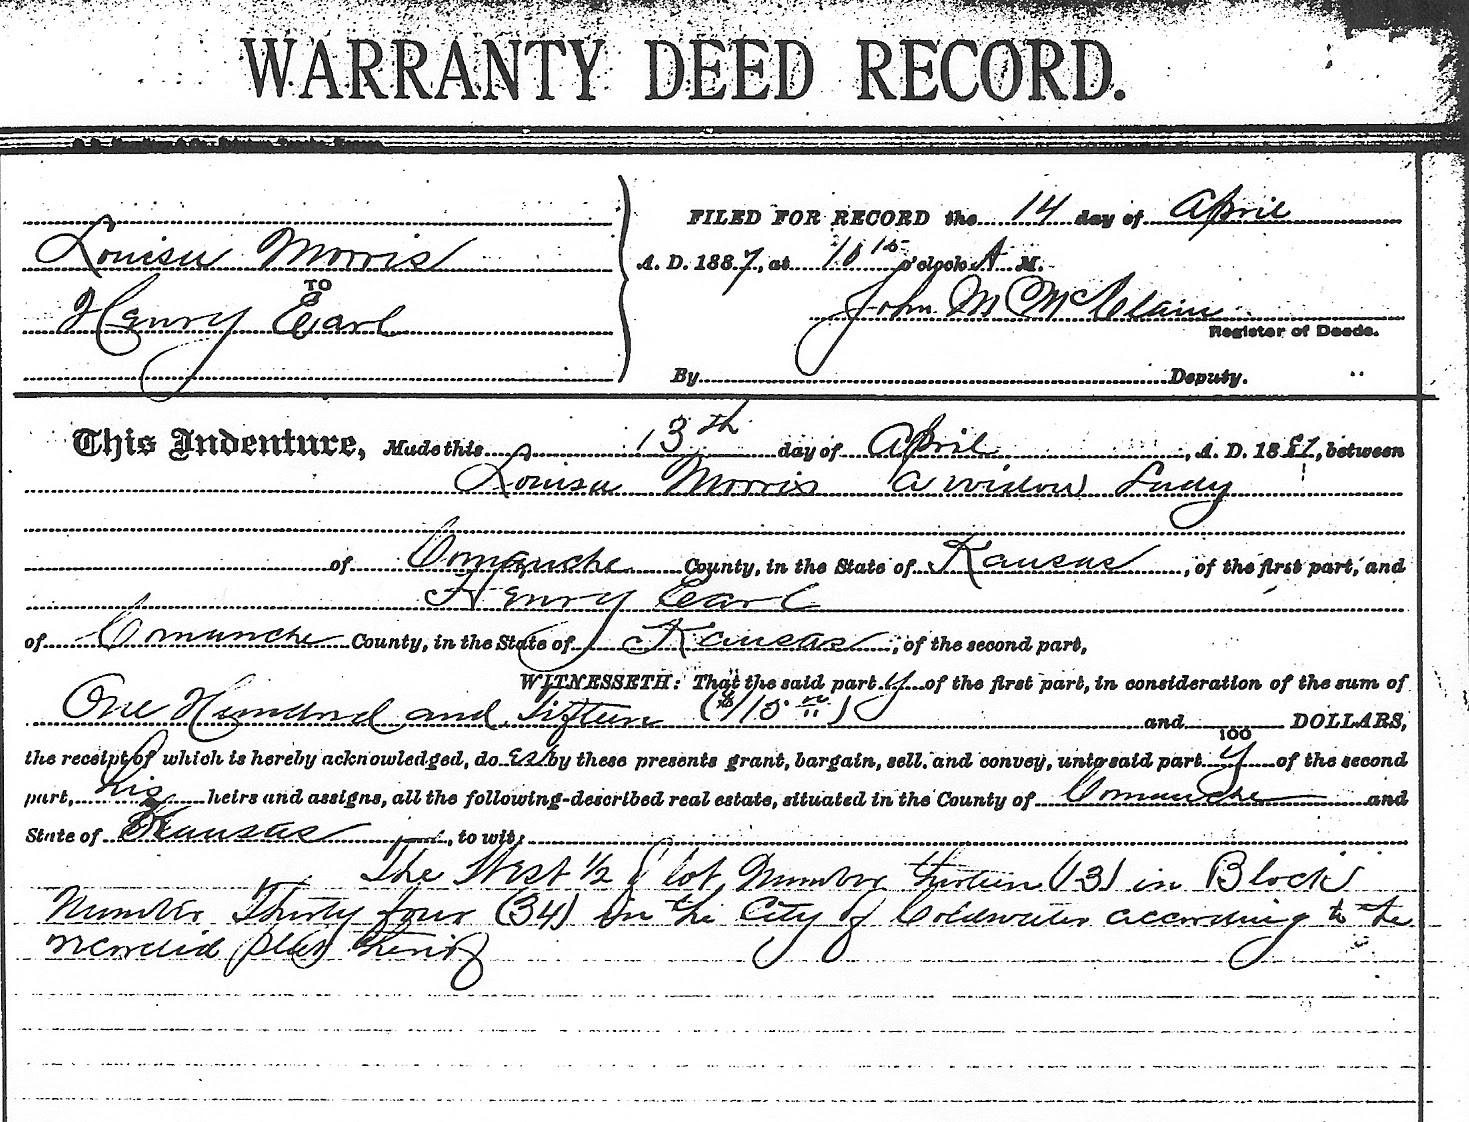 WARRANTY DEED RECORD.
Louisa Morris
TO
Henry Earl
FILED FOR RECORD the 14 day of April
A. D. 1887, at 10 15 o'clock A M.
John M McClain
Register of Deeds.
By Deputy.
This Indenture, Made this 13th day of April, A. D. 1887, between
Louisa Morris a widow Lady
of Comanche County, in the State of Kansas, of the first part, and
Henry Earl
of Comanche County, in the State of Kansas, of the second part,
WITNESSETH: That the said party of the first part, in consideration of the sum of
One Hundred and Fifteen ($115 00) and /100 DOLLARS,
the receipt of which is hereby acknowledged, do es by these presents grant, bargain, sell and convey, unto said party of the second
part, his heirs and assigns, all the following-described real estate, situated in the County of Comanche and
State of Kansas, to wit:
The West 1/2 of lot Number thirteen (13) in Block
Number Thirty four (34) in the City of Coldwater according to the
recorded plat thereof